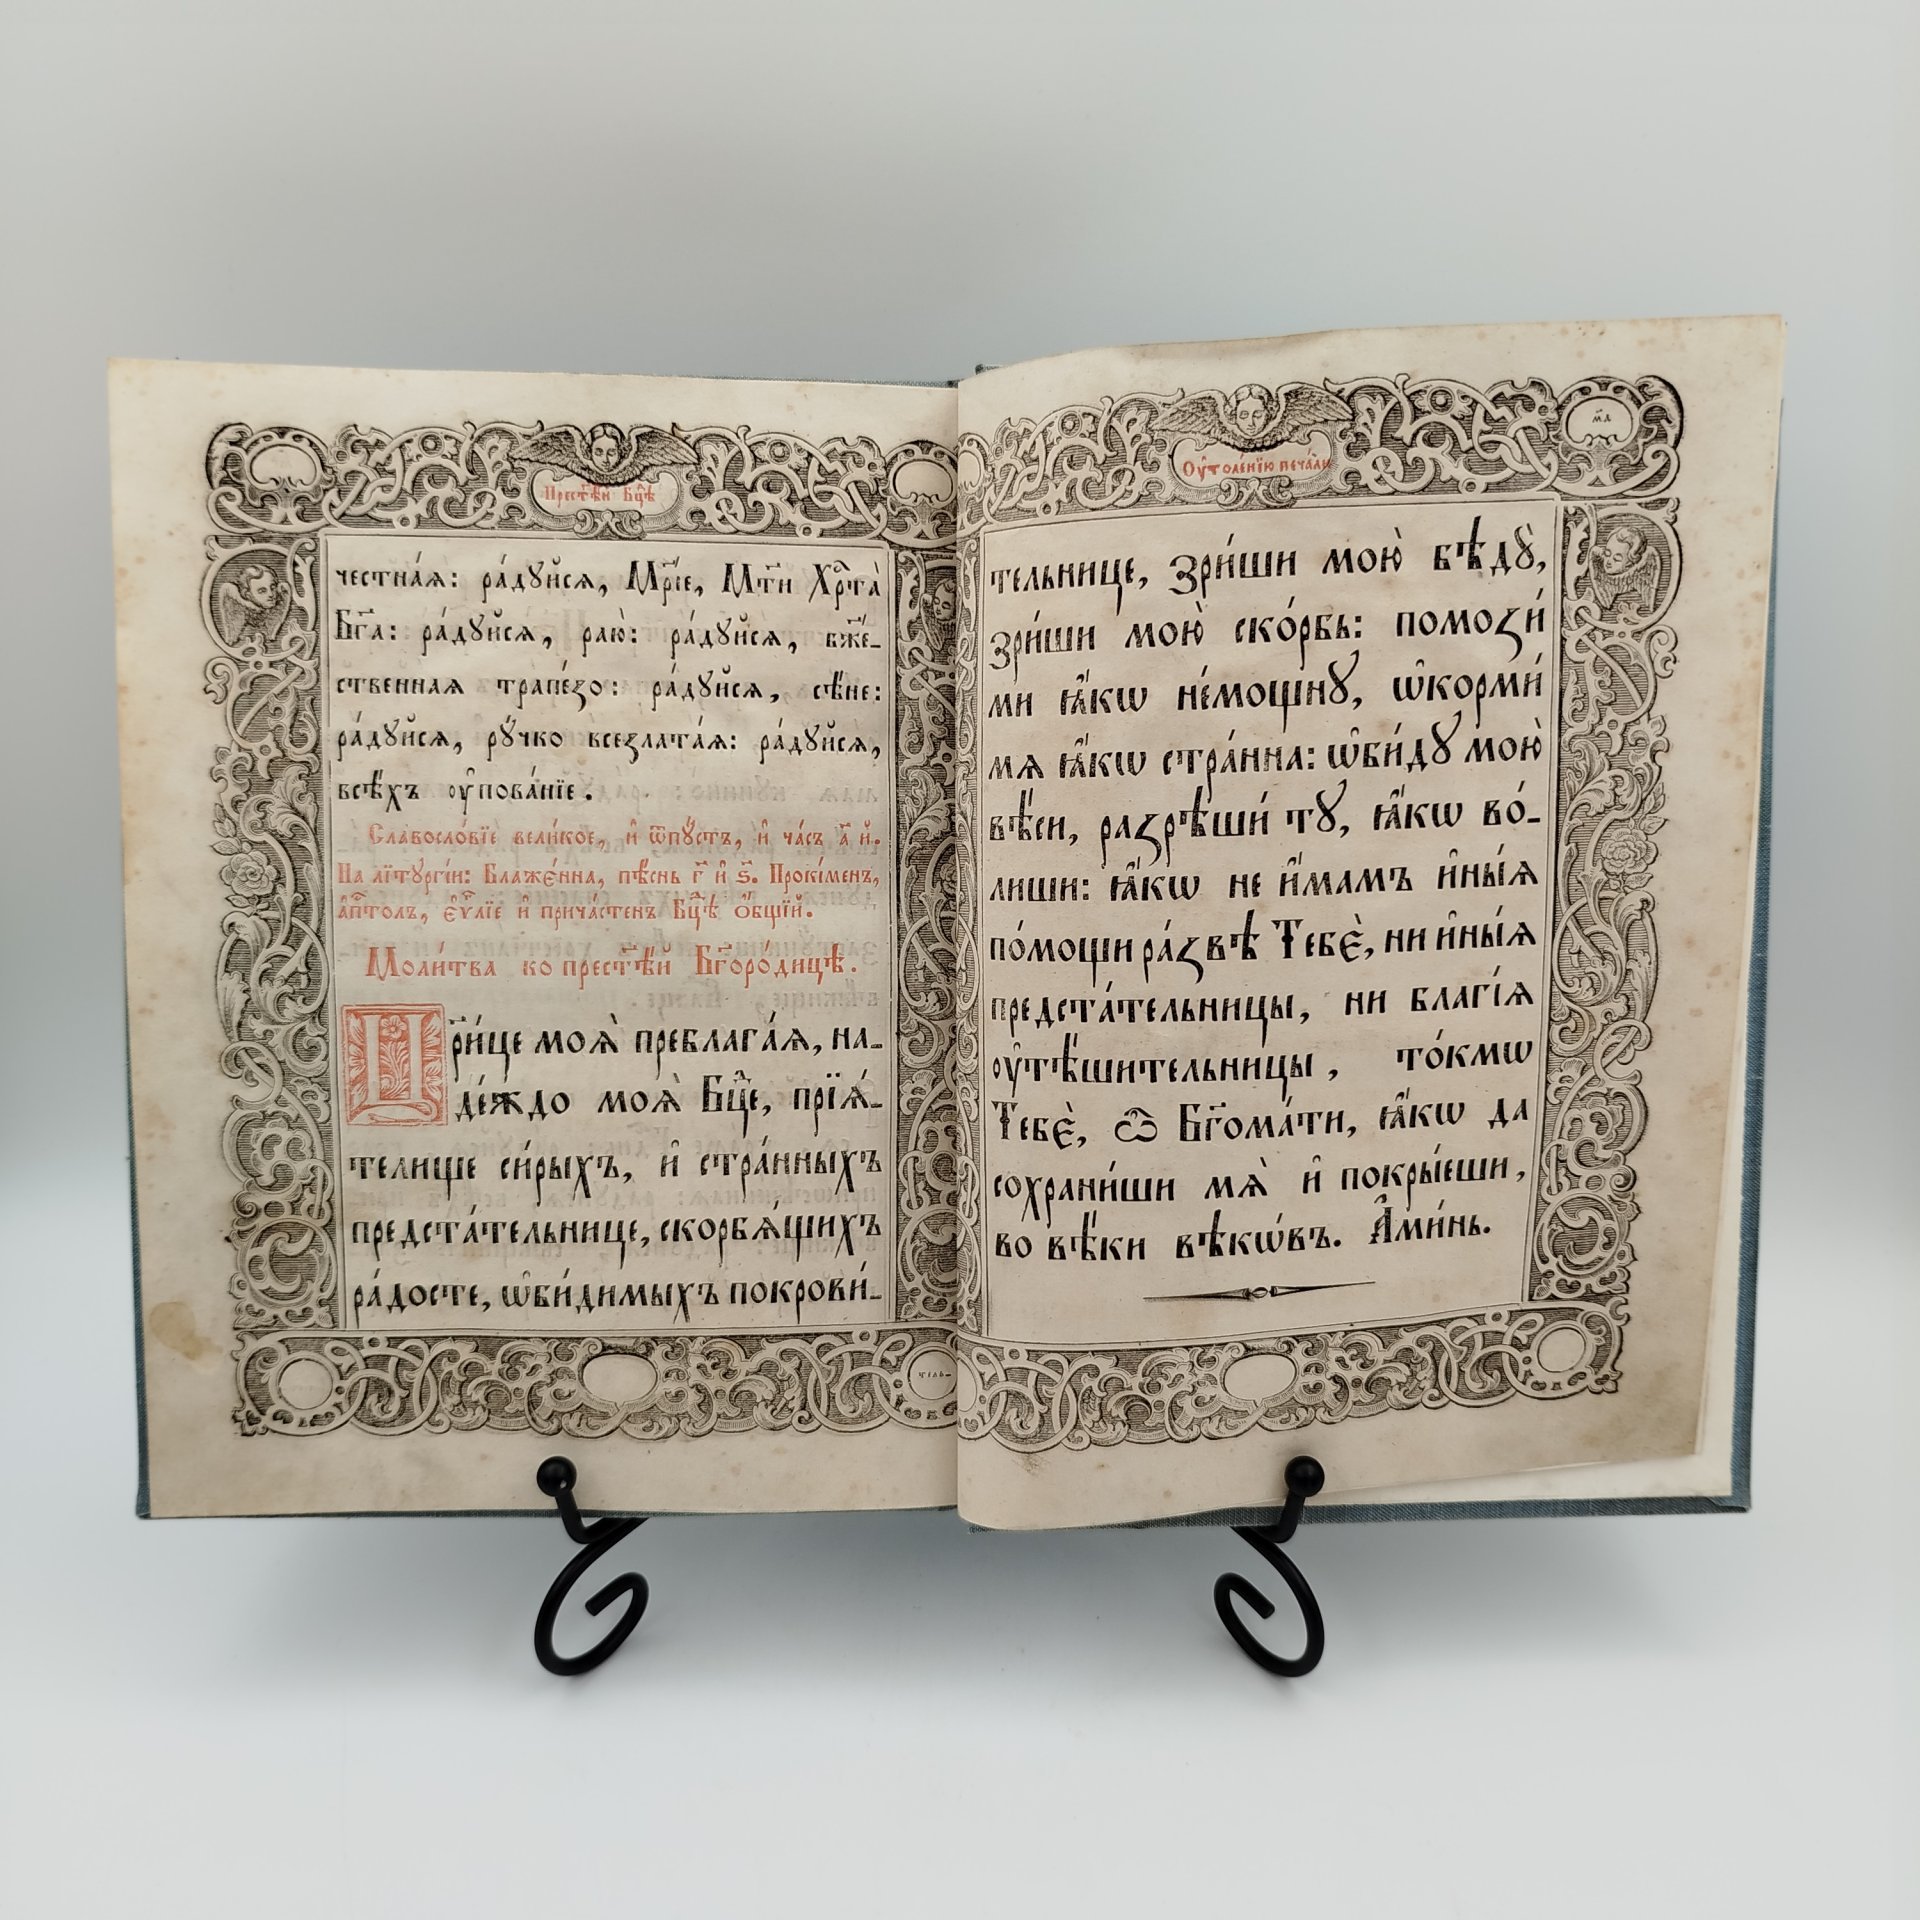 Прест҃ѣи Бц҃ѣ
честна́ѧ: ра́дꙋйсѧ, Мр҃і́е, Мт҃и Хрⷭ҇та̀
Бг҃а: ра́дꙋйсѧ, раю̀: ра́дꙋйсѧ, бж҃е-
ственнаѧ трапе́зо: ра́дꙋйсѧ, сѣ́не:
ра́дꙋйсѧ, рꙋ́чко всезлата́ѧ: ра́дꙋйсѧ,
всѣ́хъ ᲂу҆пова́нїе.
Славосло́вїе вели́кое, и҆ ѿпꙋ́стъ, и҆ ча́съ а҃ й.
На лїтꙋргі́и: Блаже́нна, пѣ́снь г҃ и҆ ѕ҃. Прокі́менъ,
а҆пⷭ҇толъ, є҆ѵⷢ҇лїе и҆ прича́стенъ Бц҃ѣ ѻ҆́бщїй.
Моли́тва ко прест҃ѣ́й Бг҃оро́дицѣ.
Цр҃и́це моѧ̀ преблага́ѧ, на-
де́ждо моѧ̀ Бцⷣе, прїѧ́-
телище си́рыхъ, и҆ стра́нныхъ
предста́тельнице, скорбѧ́щихъ
ра́досте, ѡ҆би́димыхъ покрови́-
тель-
Оу҆толе́нїю печа́ли
м҃а
тельнице, зри́ши мою̀ бѣдꙋ̀,
зри́ши мою̀ ско́рбь: помози́
ми ꙗ҆́кѡ не́мощнꙋ, ѡ҆корми́
мѧ ꙗ҆́кѡ стра́нна: ѡ҆би́дꙋ мою̀
вѣ́си, разрѣши́ тꙋ, ꙗ҆́кѡ во́-
лиши: ꙗ҆́кѡ не и҆́мамъ и҆ны́ѧ
по́мощи ра́звѣ Тебє̀, ни и҆ны́ѧ
предста́тельницы, ни благі́ѧ
ᲂу҆тѣ́шительницы, то́кмѡ
Тебє̀, ѽ Бг҃ома́ти, ꙗ҆́кѡ да
сохрани́ши мѧ̀ и҆ покры́еши,
во вѣ́ки вѣкѡ́въ. А҆ми́нь.